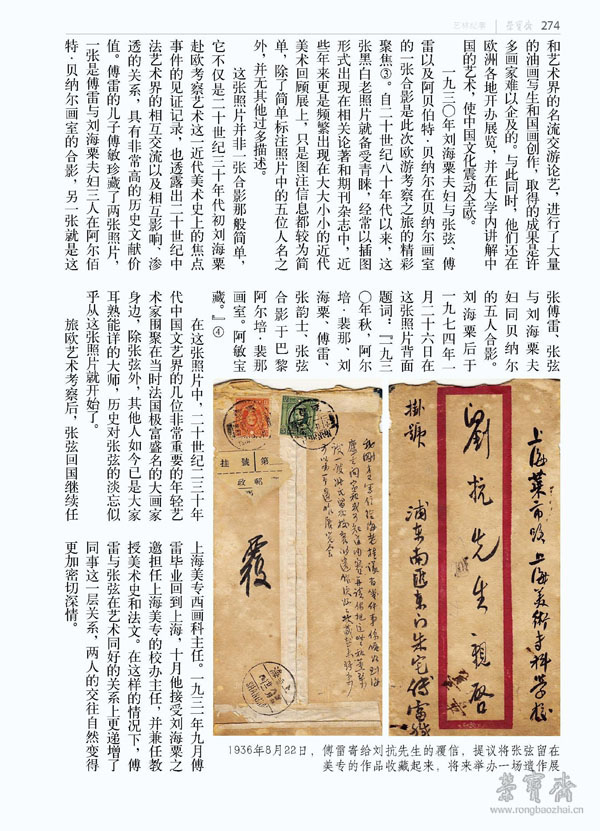 艺林纪事 荣宝斋 274
和艺术界的名流交游论艺，进行了大量
的油画写生和国画创作，取得的成果是许
多画家难以企及的。与此同时，他们还在
欧洲各地开办展览，并在大学内讲解中
国的艺术，使中国文化震动全欧。
一九三〇年刘海粟夫妇与张弦、傅
雷以及阿贝伯特·贝纳尔在贝纳尔画室
的一张合影是此次欧游考察之旅的精彩
聚焦③。自二十世纪八十年代以来，这
张黑白老照片就备受青睐，经常以插图
形式出现在相关论著和期刊杂志中，近
些年来更是频繁出现在大大小小的近代
美术回顾展上，只是图注信息都较为简
单，除了简单标注照片中的五位人名之
外，并无其他过多描述。
这张照片并非一张合影那般简单，
它不仅是二十世纪三十年代初刘海粟
赴欧考察艺术这一近代美术史上的焦点
事件的见证记录，也透露出二十世纪中
法艺术界的相互交流以及相互影响、渗
透的关系，具有非常高的历史文献价
值。傅雷的儿子傅敏珍藏了两张照片，
一张是傅雷与刘海粟夫妇三人在阿尔佰
特·贝纳尔画室的合影，另一张就是这
张傅雷、张弦
与刘海粟夫
妇同贝纳尔
的五人合影。
刘海粟后于
一九七四年一
月二十六日在
这张照片背面
题词：『一九三
〇年秋，阿尔
培·裴那、刘
海粟、傅雷、
张韵士、张弦
合影于巴黎
阿尔培·裴那
画室。阿敏宝
藏。』④
在这张照片中，二十世纪二三十年
代中国文艺界的几位非常重要的年轻艺
术家围聚在当时法国极富盛名的大画家
身边，除张弦外，其他人如今已是大家
耳熟能详的大师，历史对张弦的淡忘似
乎从这张照片就开始了。
旅欧艺术考察后，张弦回国继续任
上海美专西画科主任。一九三一年九月傅
雷毕业回到上海，十月他接受刘海粟之
邀担任上海美专的校办主任，并兼任教
授美术史和法文。在这样的情况下，傅
雷与张弦在艺术同好的关系上更递增了
同事这一层关系，两人的交往自然变得
更加密切深情。
上海菜市路 上海美術專科學校
劉抗先生親啓
掛號
浦东南匯东门朱宅傅
第
掛號
郵政
覆
1936年8月22日，傅雷寄给刘抗先生的覆信，提议将张弦留在
美专的作品收藏起来，将来举办一场遗作展
荣宝斋
www.rongbaozhai.cn